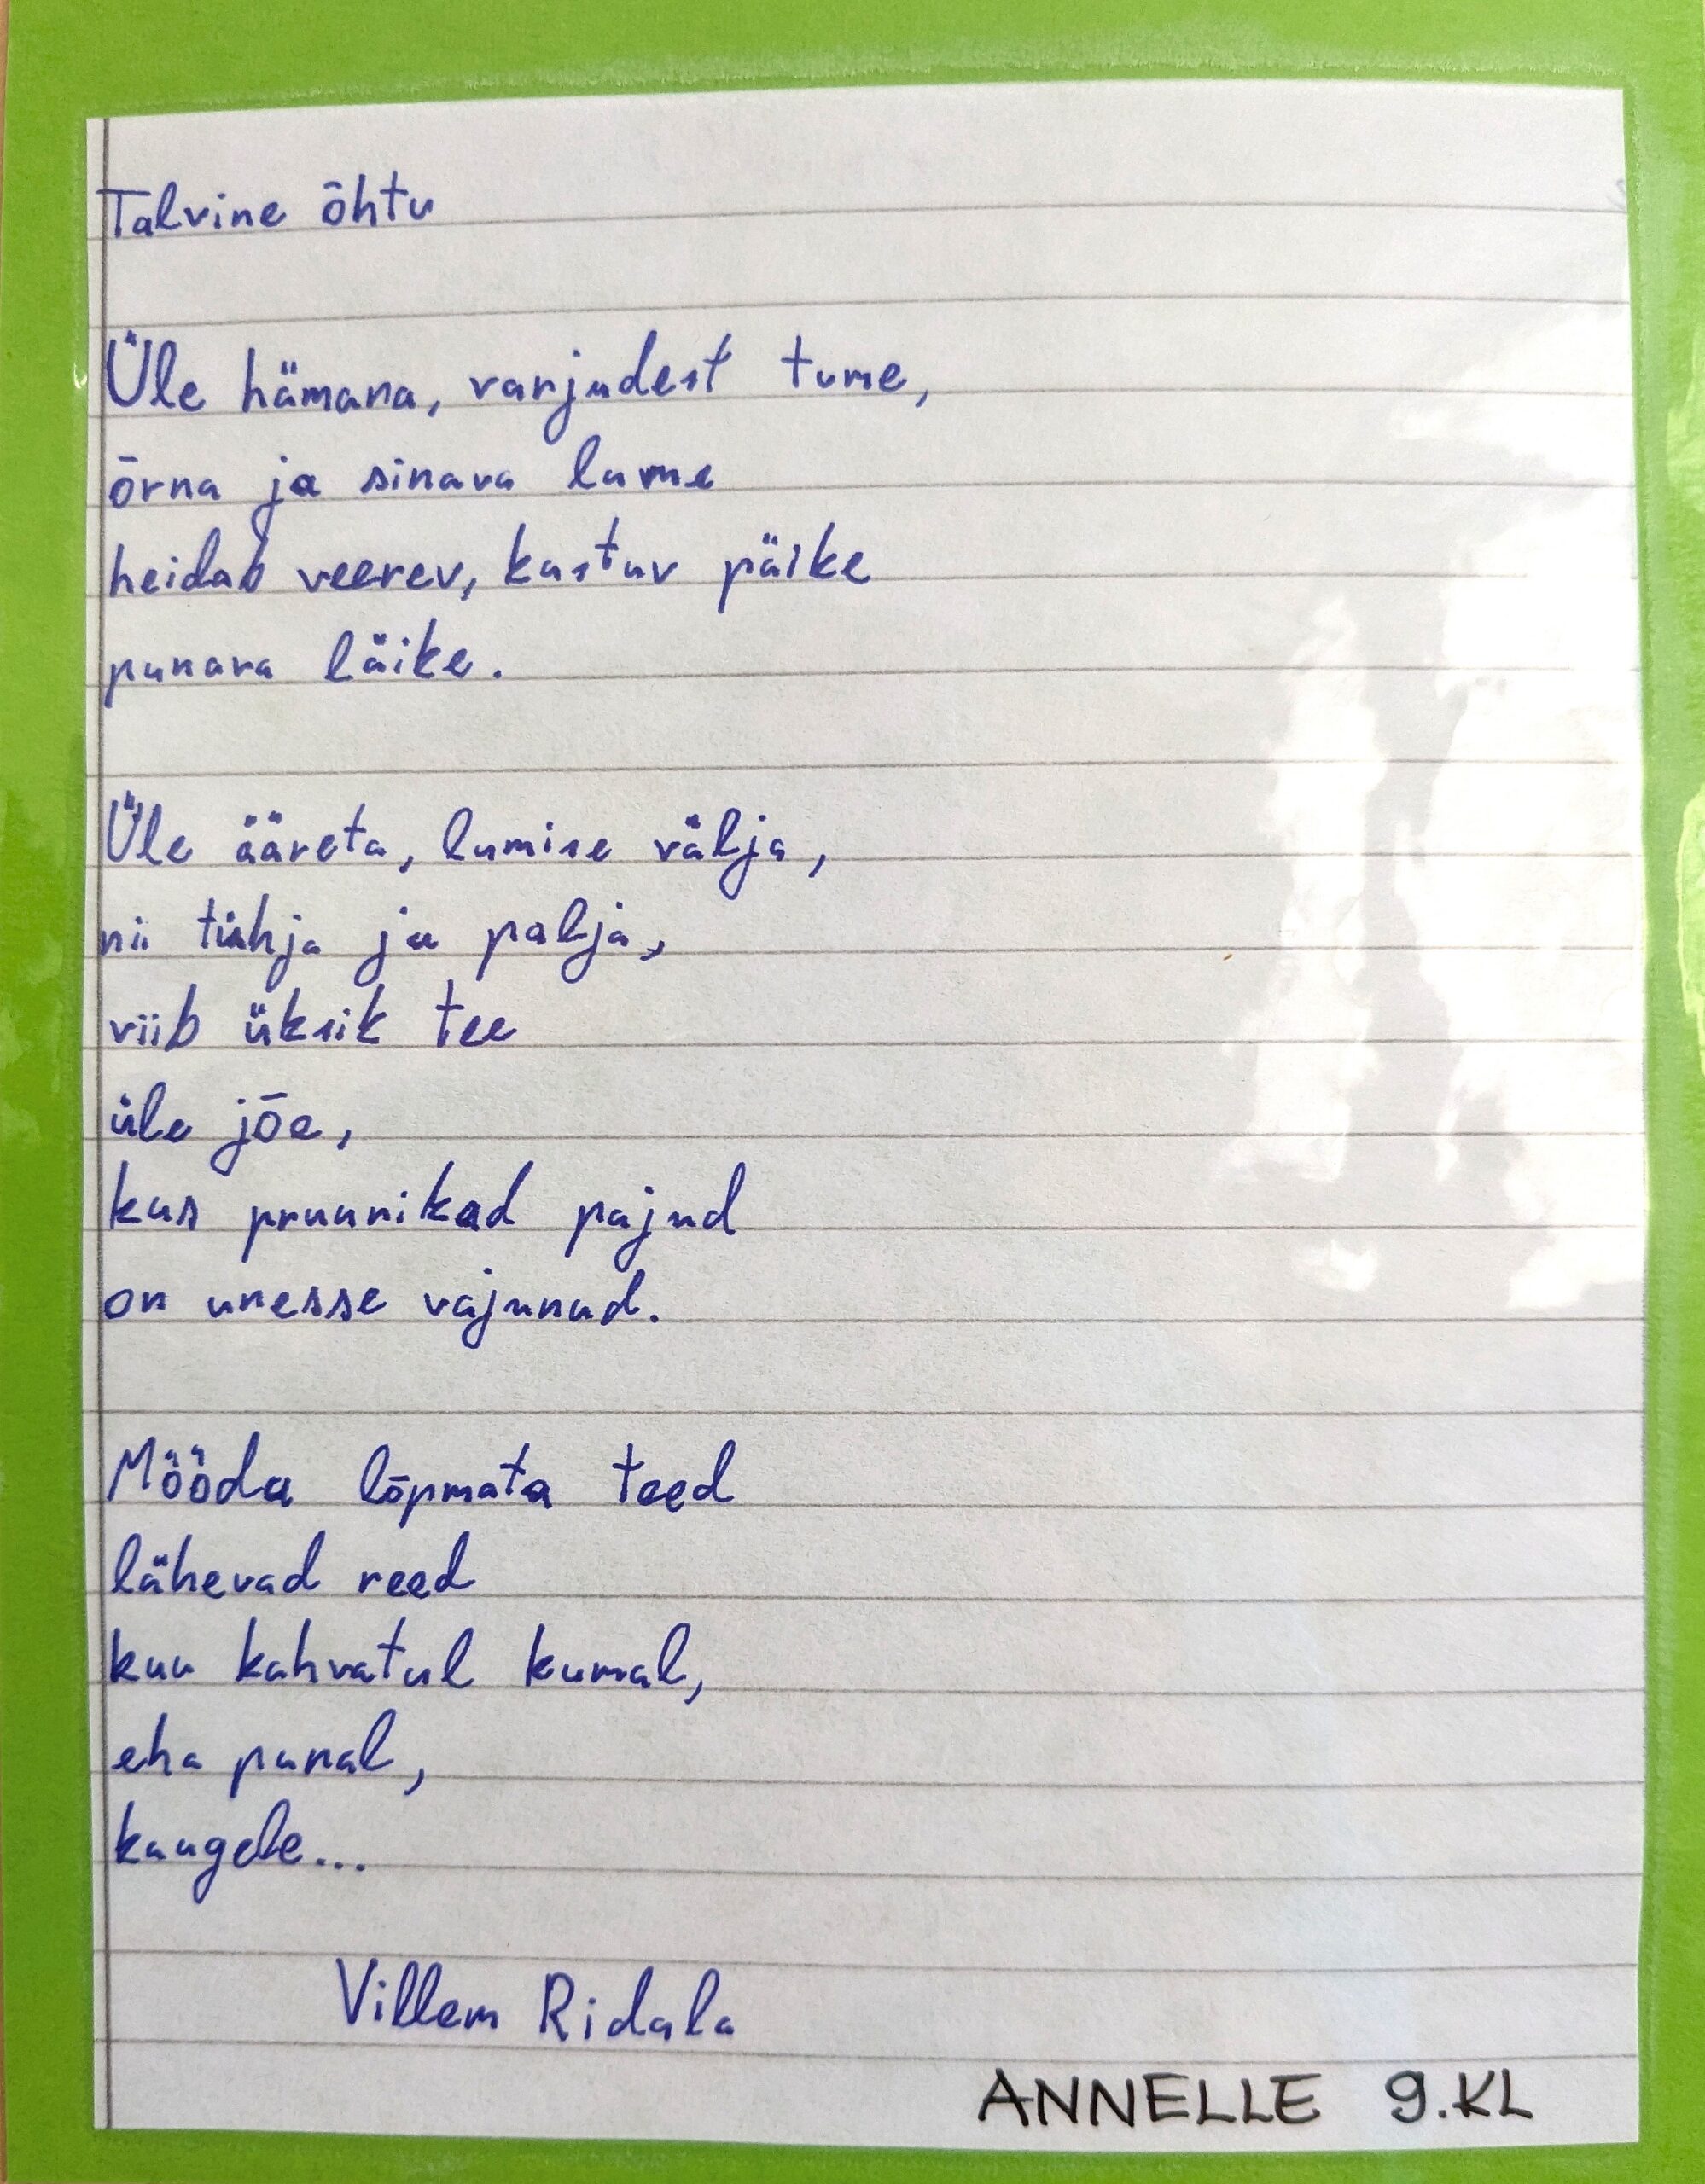 Talvine õhtu
Üle hämara, varjudest tume,
õrna ja sinava lume
heidab veerev, kustuv päike
punava läike.
Üle ääreta, lumise välja,
nii tühja ja palja,
viib üksik tee
üle jõe,
kus pruunikad pajud
on unesse vajunud.
Mööda lõpmata teed
lähevad reed
kuu kahvatul kumal,
eha punal,
kaugele...
Villem Ridala
ANNELLE 9.KL